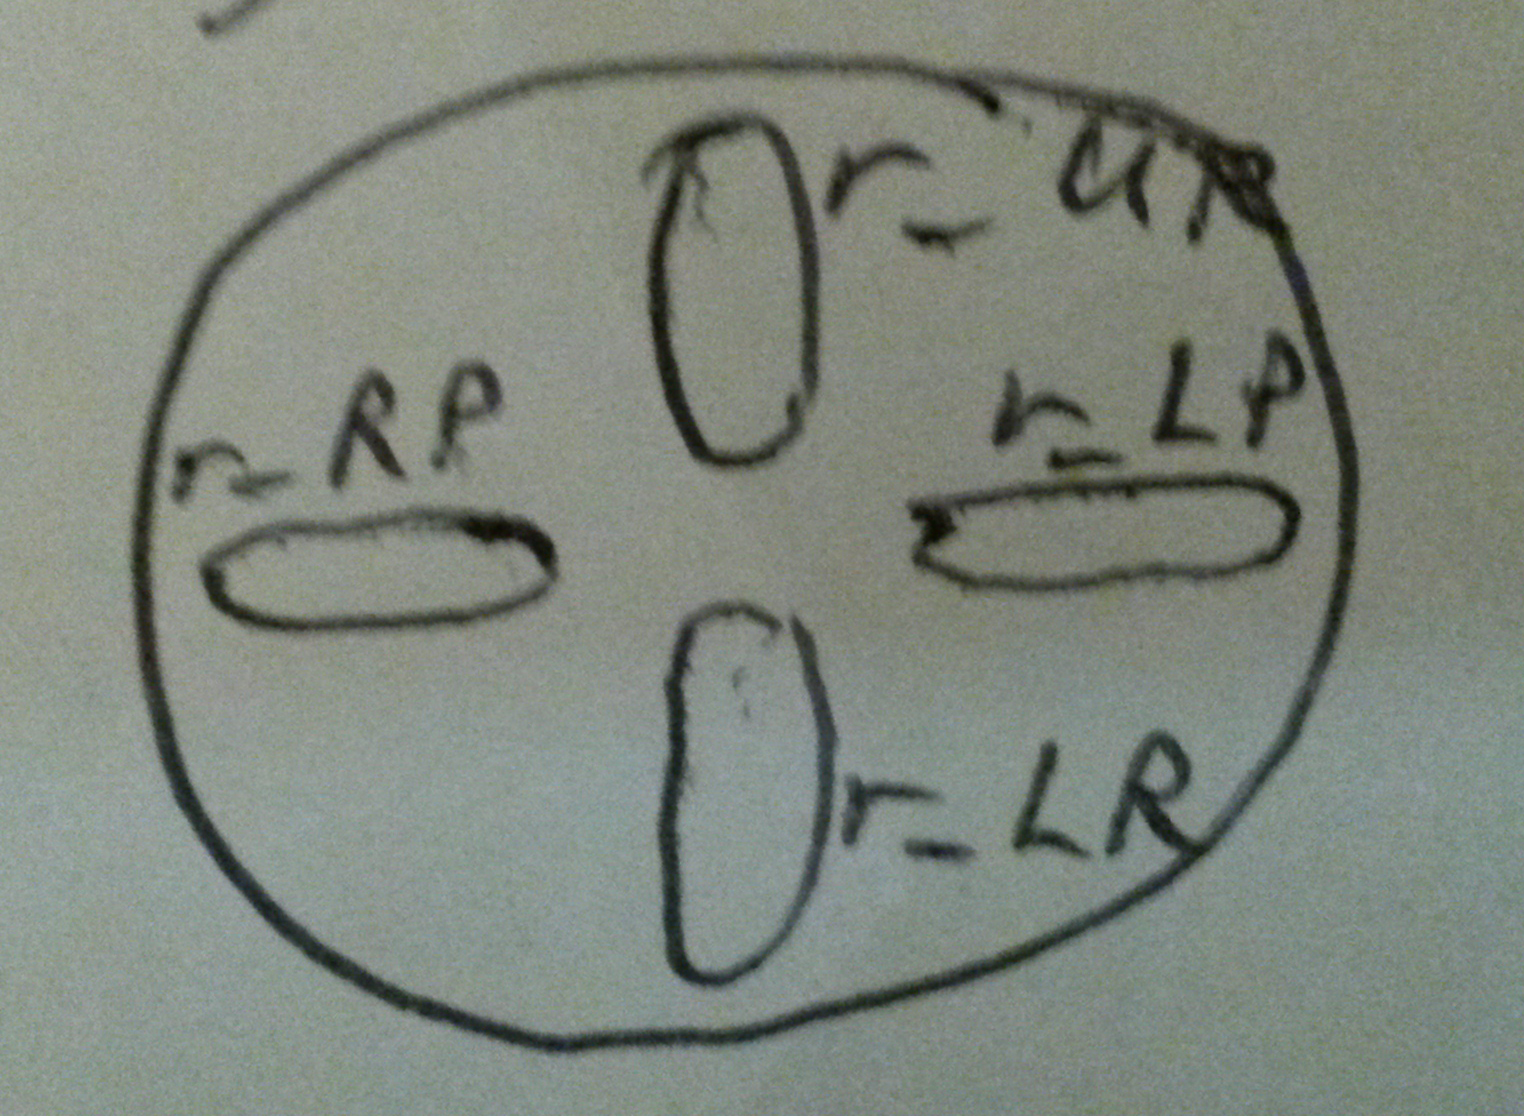 r_UR
r_RP
r_LP
r_LR